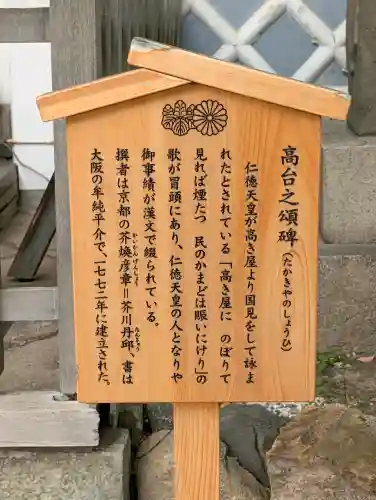 高台之頌碑(たかきやのしょうひ)
仁徳天皇が高き屋より国見をして詠ま
れたとされている「高き屋に のぼりて
見れば煙たつ 民のかまどは賑いにけり」の
歌が冒頭にあり、仁徳天皇の人となりや
御事績が漢文で綴られている。
撰者は京都の芥煥彦章＝芥川丹邱、書は
大阪の牟純平介で、一七七二年に建立された。